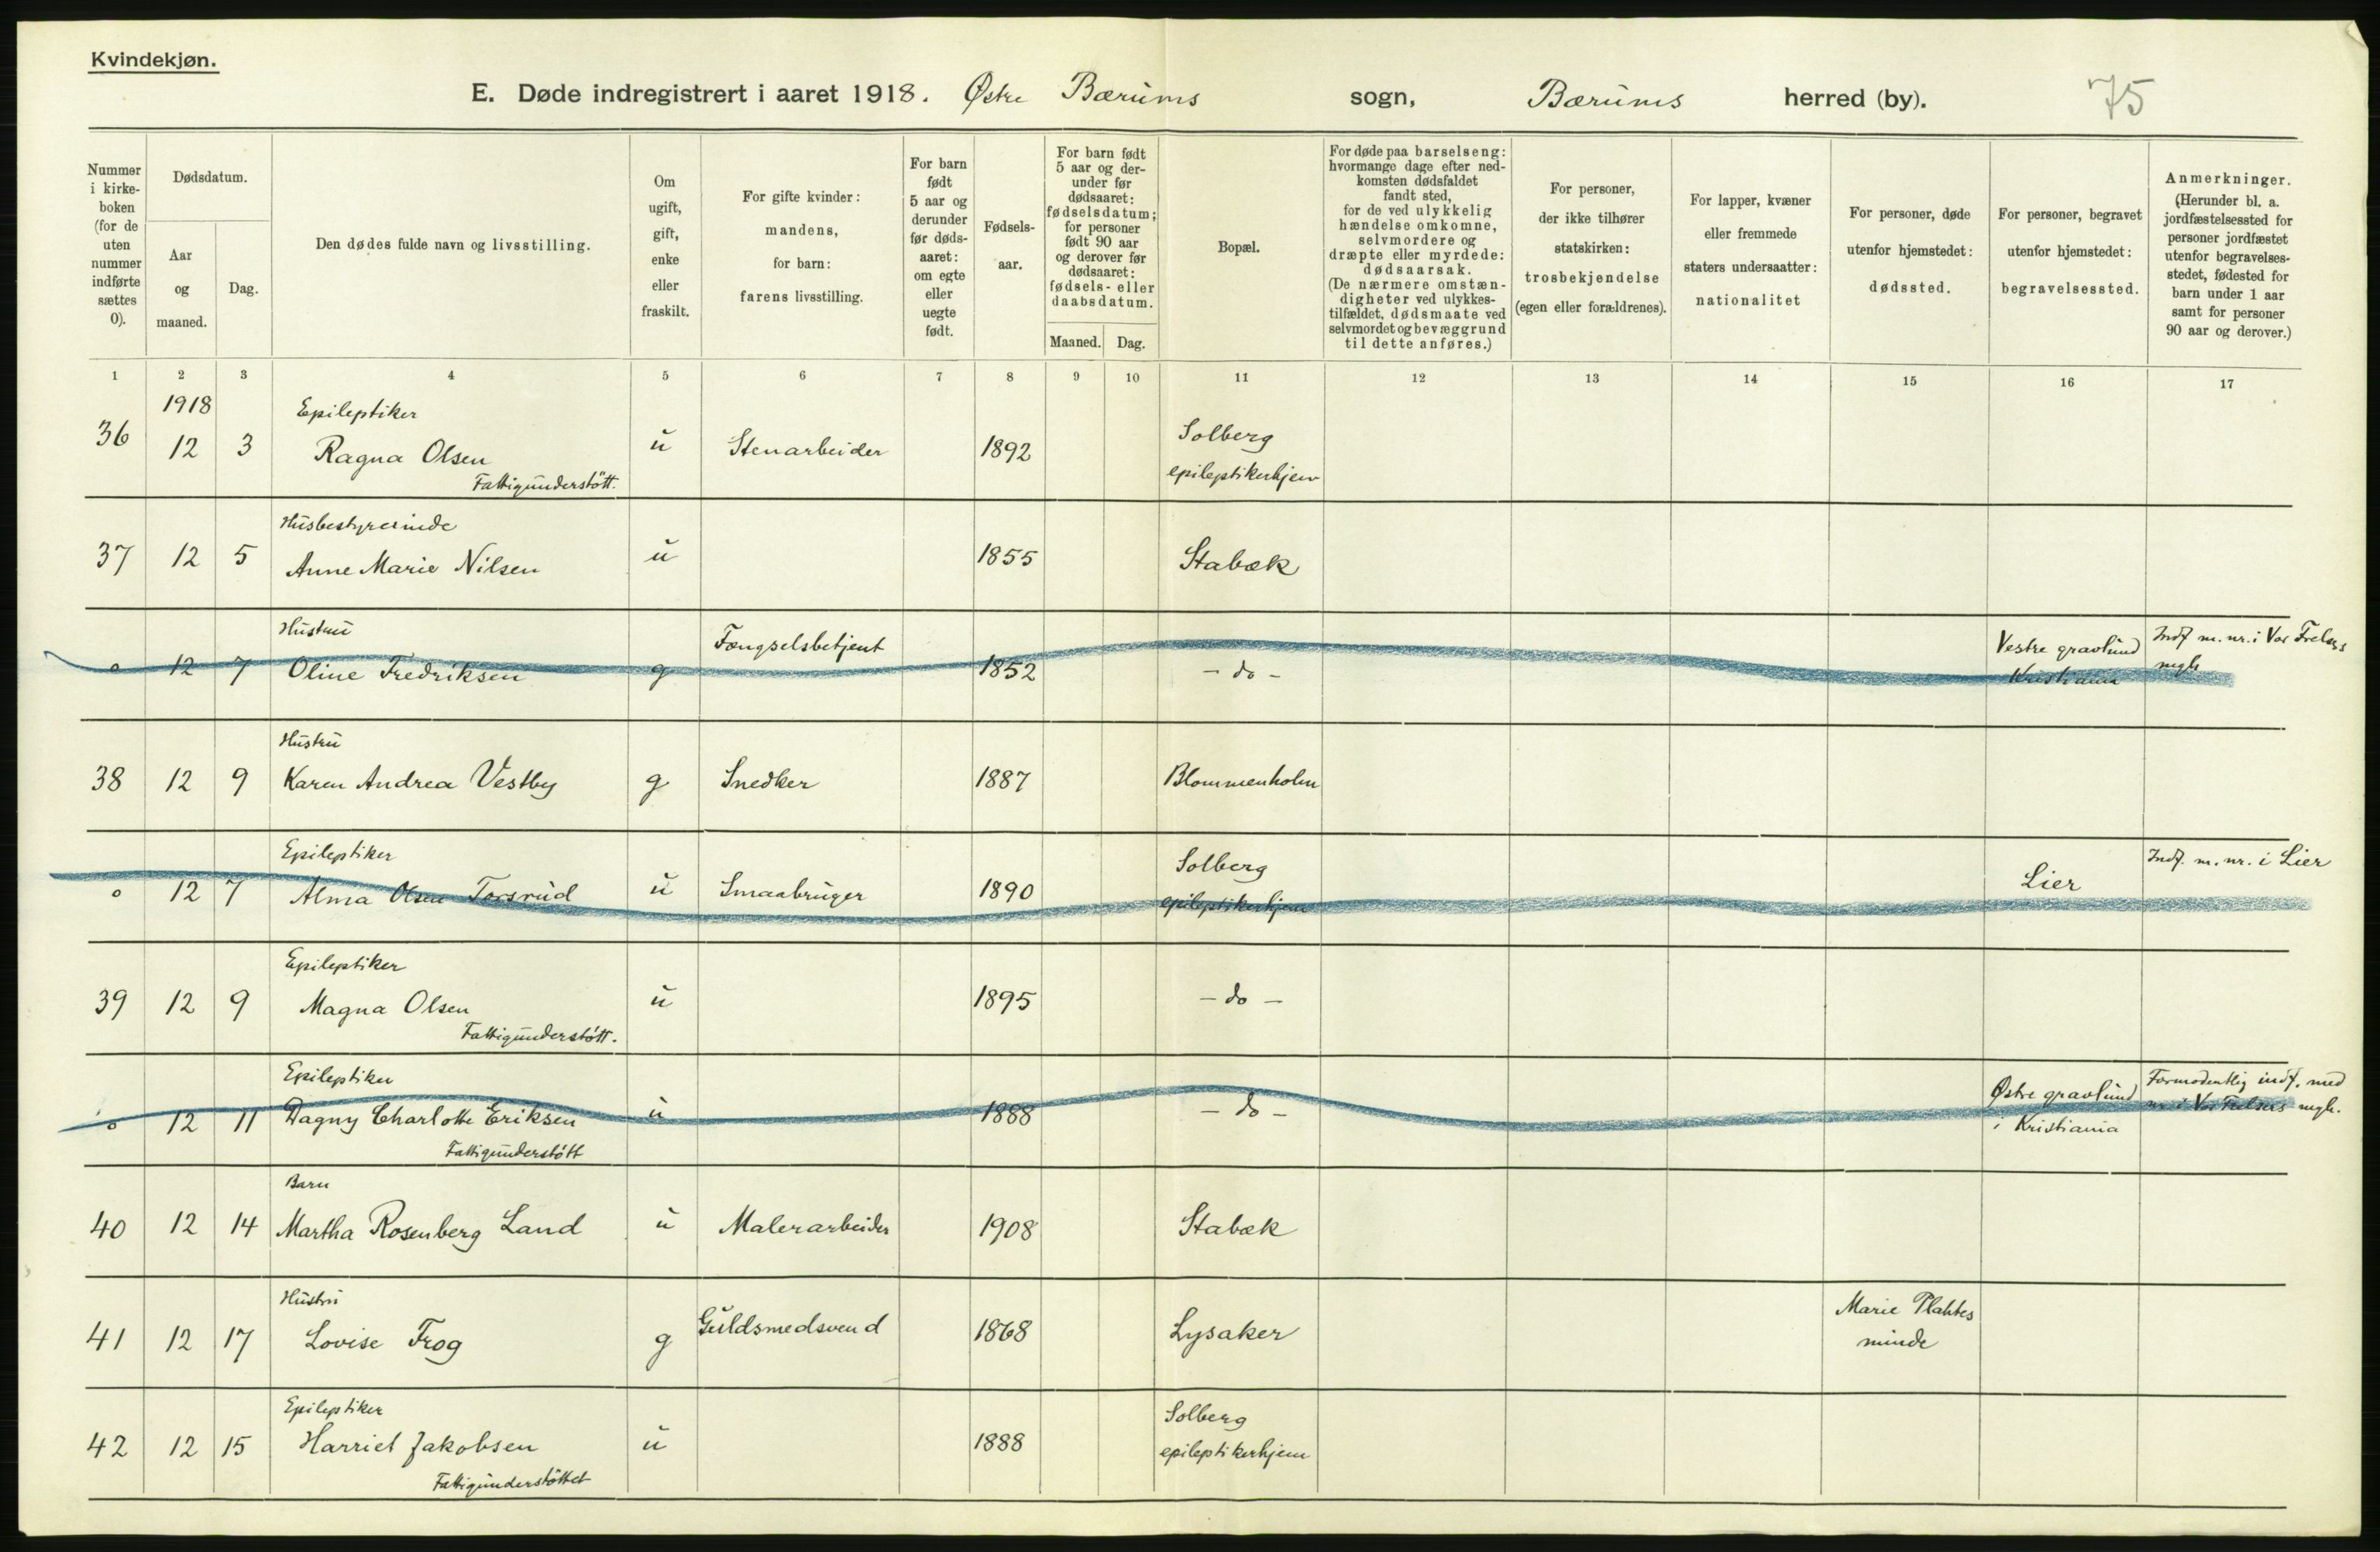 Kvindekjøn.
E. Døde indregistrert i aaret 1918. Østre Bærums sogn, Bærums herred (by). 75
Nummer
i kirke-
boken
(for de
uten
nummer
indførte
sættes
0).
Dødsdatum.
Aar
og
maaned.
Dag.
Den dødes fulde navn og livsstilling.
Om
ugift,
gift,
enke
eller
fraskilt.
For gifte kvinder:
mandens,
for barn:
farens livsstilling.
For barn
født
5 aar og
derunder
før døds-
aaret:
om egte
eller
uegte
født.
Fødsels-
aar.
For barn født
5 aar og der-
under før
dødsaaret:
fødselsdatum;
for personer
født 90 aar
og derover før
dødsaaret:
fødsels- eller
daabsdatum.
Maaned. Dag.
Bopæl.
For døde paa barselseng:
hvormange dage efter ned-
komsten dødsfaldet
fandt sted,
for de ved ulykkelig
hændelse omkomne,
selvmordere og
dræpte eller myrdede:
dødsaarsak.
(De nærmere omstæn-
digheter ved ulykkes-
tilfældet, dødsmaate ved
selvmordet og bevæggrund
til dette anføres.)
For personer,
der ikke tilhører
statskirken:
trosbekjendelse
(egen eller forældrenes).
For lapper, kvæner
eller fremmede
staters undersaatter:
nationalitet
For personer, døde
utenfor hjemstedet:
dødssted.
For personer, begravet
utenfor hjemstedet:
begravelsessted.
Anmerkninger.
(Herunder bl. a.
jordfæstelsessted for
personer jordfæstet
utenfor begravelses-
stedet, fødested for
barn under 1 aar
samt for personer
90 aar og derover.)
1 2 3 4 5 6 7 8 9 10 11 12 13 14 15 16 17
1918 Epileptiker Solberg
36 12 3 Ragna Olsen u Stenarbeider 1892 epileptikerhjem
Fattigunderstøtt.
Husbestyrerinde
37 12 5 Anne Marie Nilsen u 1855 Stabæk
Hustru Fængselsbetjent Vestre gravlund Indf m. nr. i Vor Frelsers
0 12 7 Oline Fredriksen g 1852 - do - Kristiania mgh
Hustru
38 12 9 Karen Andrea Vestby g Snedker 1887 Blommenholm
Epileptiker Solberg Indf. m. nr. i Lier
0 12 7 Alma Olsen Torsrud u Smaabruger 1890 epileptikerhjem Lier
Epileptiker
39 12 9 Magna Olsen u 1895 - do -
Fattigunderstøtt.
Epileptiker Østre gravlund Formodentlig indf. med
0 12 11 Dagny Charlotte Eriksen u 1888 - do - i Kristiania nr i Vor Frelsers mgh.
Fattigunderstøtt
Barn
40 12 14 Martha Rosenberg Land u Malerarbeider 1908 Stabæk
Hustru Marie Plahtes
41 12 17 Lovise Frog g Guldsmedsvend 1868 Lysaker minde
Epileptiker Solberg
42 12 15 Harriet Jakobsen u 1888 epileptikerhjem
Fattigunderstøttet